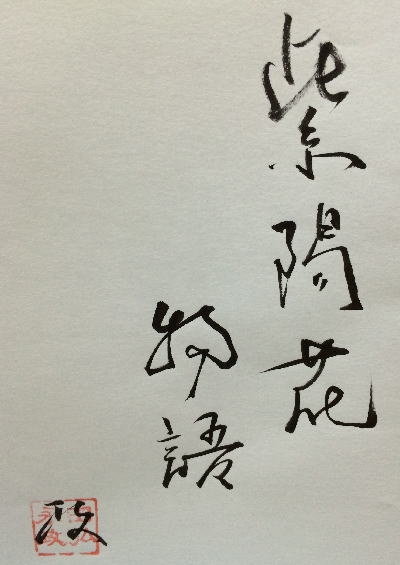 紫陽花
物語